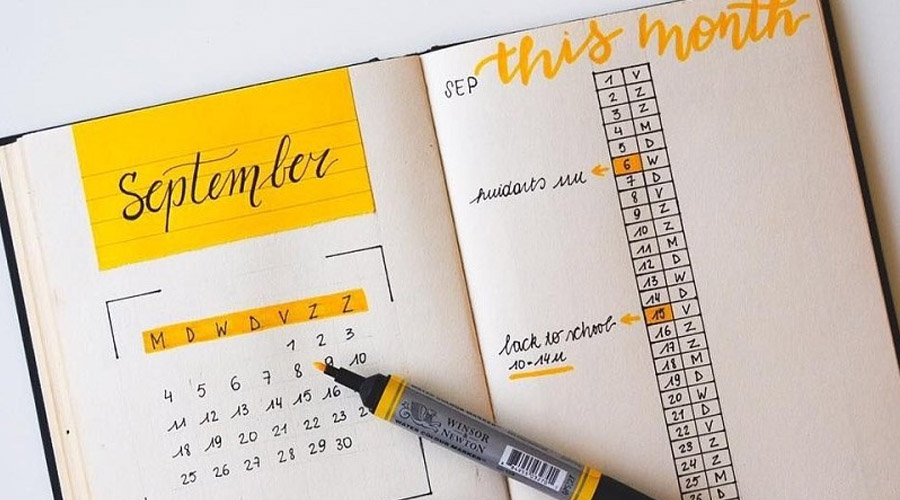 September
M D W D V Z Z
1 2 3
4 5 6 7 8 9 10
11 12 13 14 15 16
18 19 20 21 22 23 2
25 26 27 28 29 30
WINSOR
& NEWTON
WATER COLOUR MARKER
this month
SEP
1 V
2 Z
3 Z
4 M
5 D
6 W
7 D
8 V
9 Z
10 Z
11 M
12 D
13 W
14 D
15 V
16 Z
17 Z
18 M
19 D
20 W
21 D
22 V
23 Z
24 Z
25 M
26 D
huidarts
back to school
10-14u